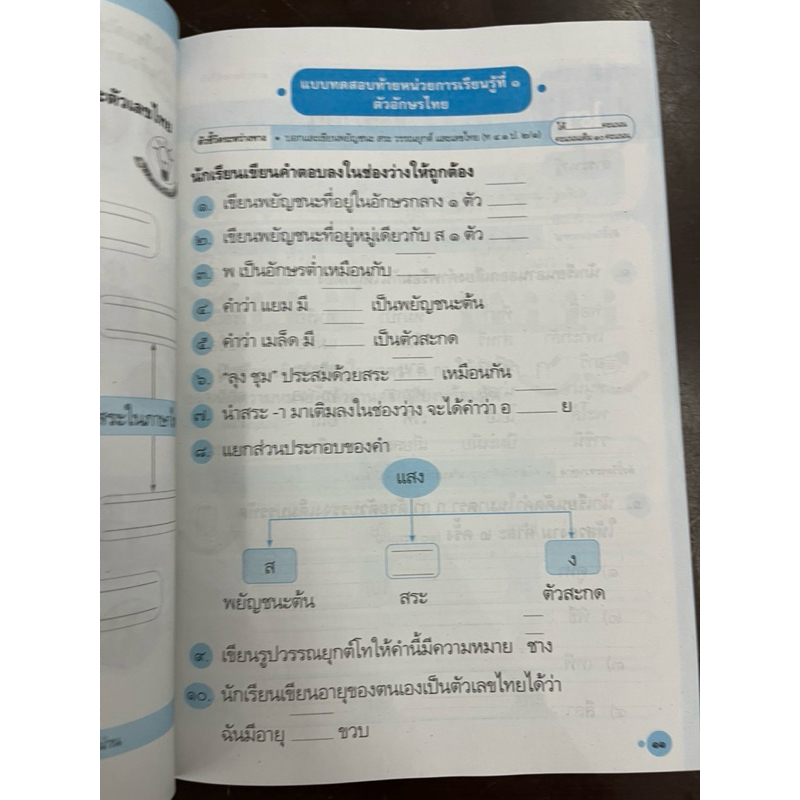 แบบทดสอบท้ายหน่วยการเรียนรู้ที่ ๑
ตัวอักษรไทย
ตัวชี้วัดระหว่างทาง • บอกและเขียนพยัญชนะ สระ วรรณยุกต์ และเลขไทย (ท ๔.๑ ป. ๒/๑)
ได้ คะแนน
คะแนนเต็ม ๑๐ คะแนน
นักเรียนเขียนคำตอบลงในช่องว่างให้ถูกต้อง
๑. เขียนพยัญชนะที่อยู่ในอักษรกลาง ๑ ตัว
๒. เขียนพยัญชนะที่อยู่หมู่เดียวกับ ส ๑ ตัว
๓. พ เป็นอักษรต่ำเหมือนกับ
๔. คำว่า แยม มี เป็นพยัญชนะต้น
๕. คำว่า เมล็ด มี เป็นตัวสะกด
๖. "ลุง ชุม" ประสมด้วยสระ เหมือนกัน
๗. นำสระ -า มาเติมลงในช่องว่าง จะได้คำว่า อ ย
๘. แยกส่วนประกอบของคำ
แสง
ส ง
พยัญชนะต้น สระ ตัวสะกด
๙. เขียนรูปวรรณยุกต์โทให้คำนี้มีความหมาย ชาง
๑๐. นักเรียนเขียนอายุของตนเองเป็นตัวเลขไทยได้ว่า
ฉันมีอายุ ขวบ
๑๑